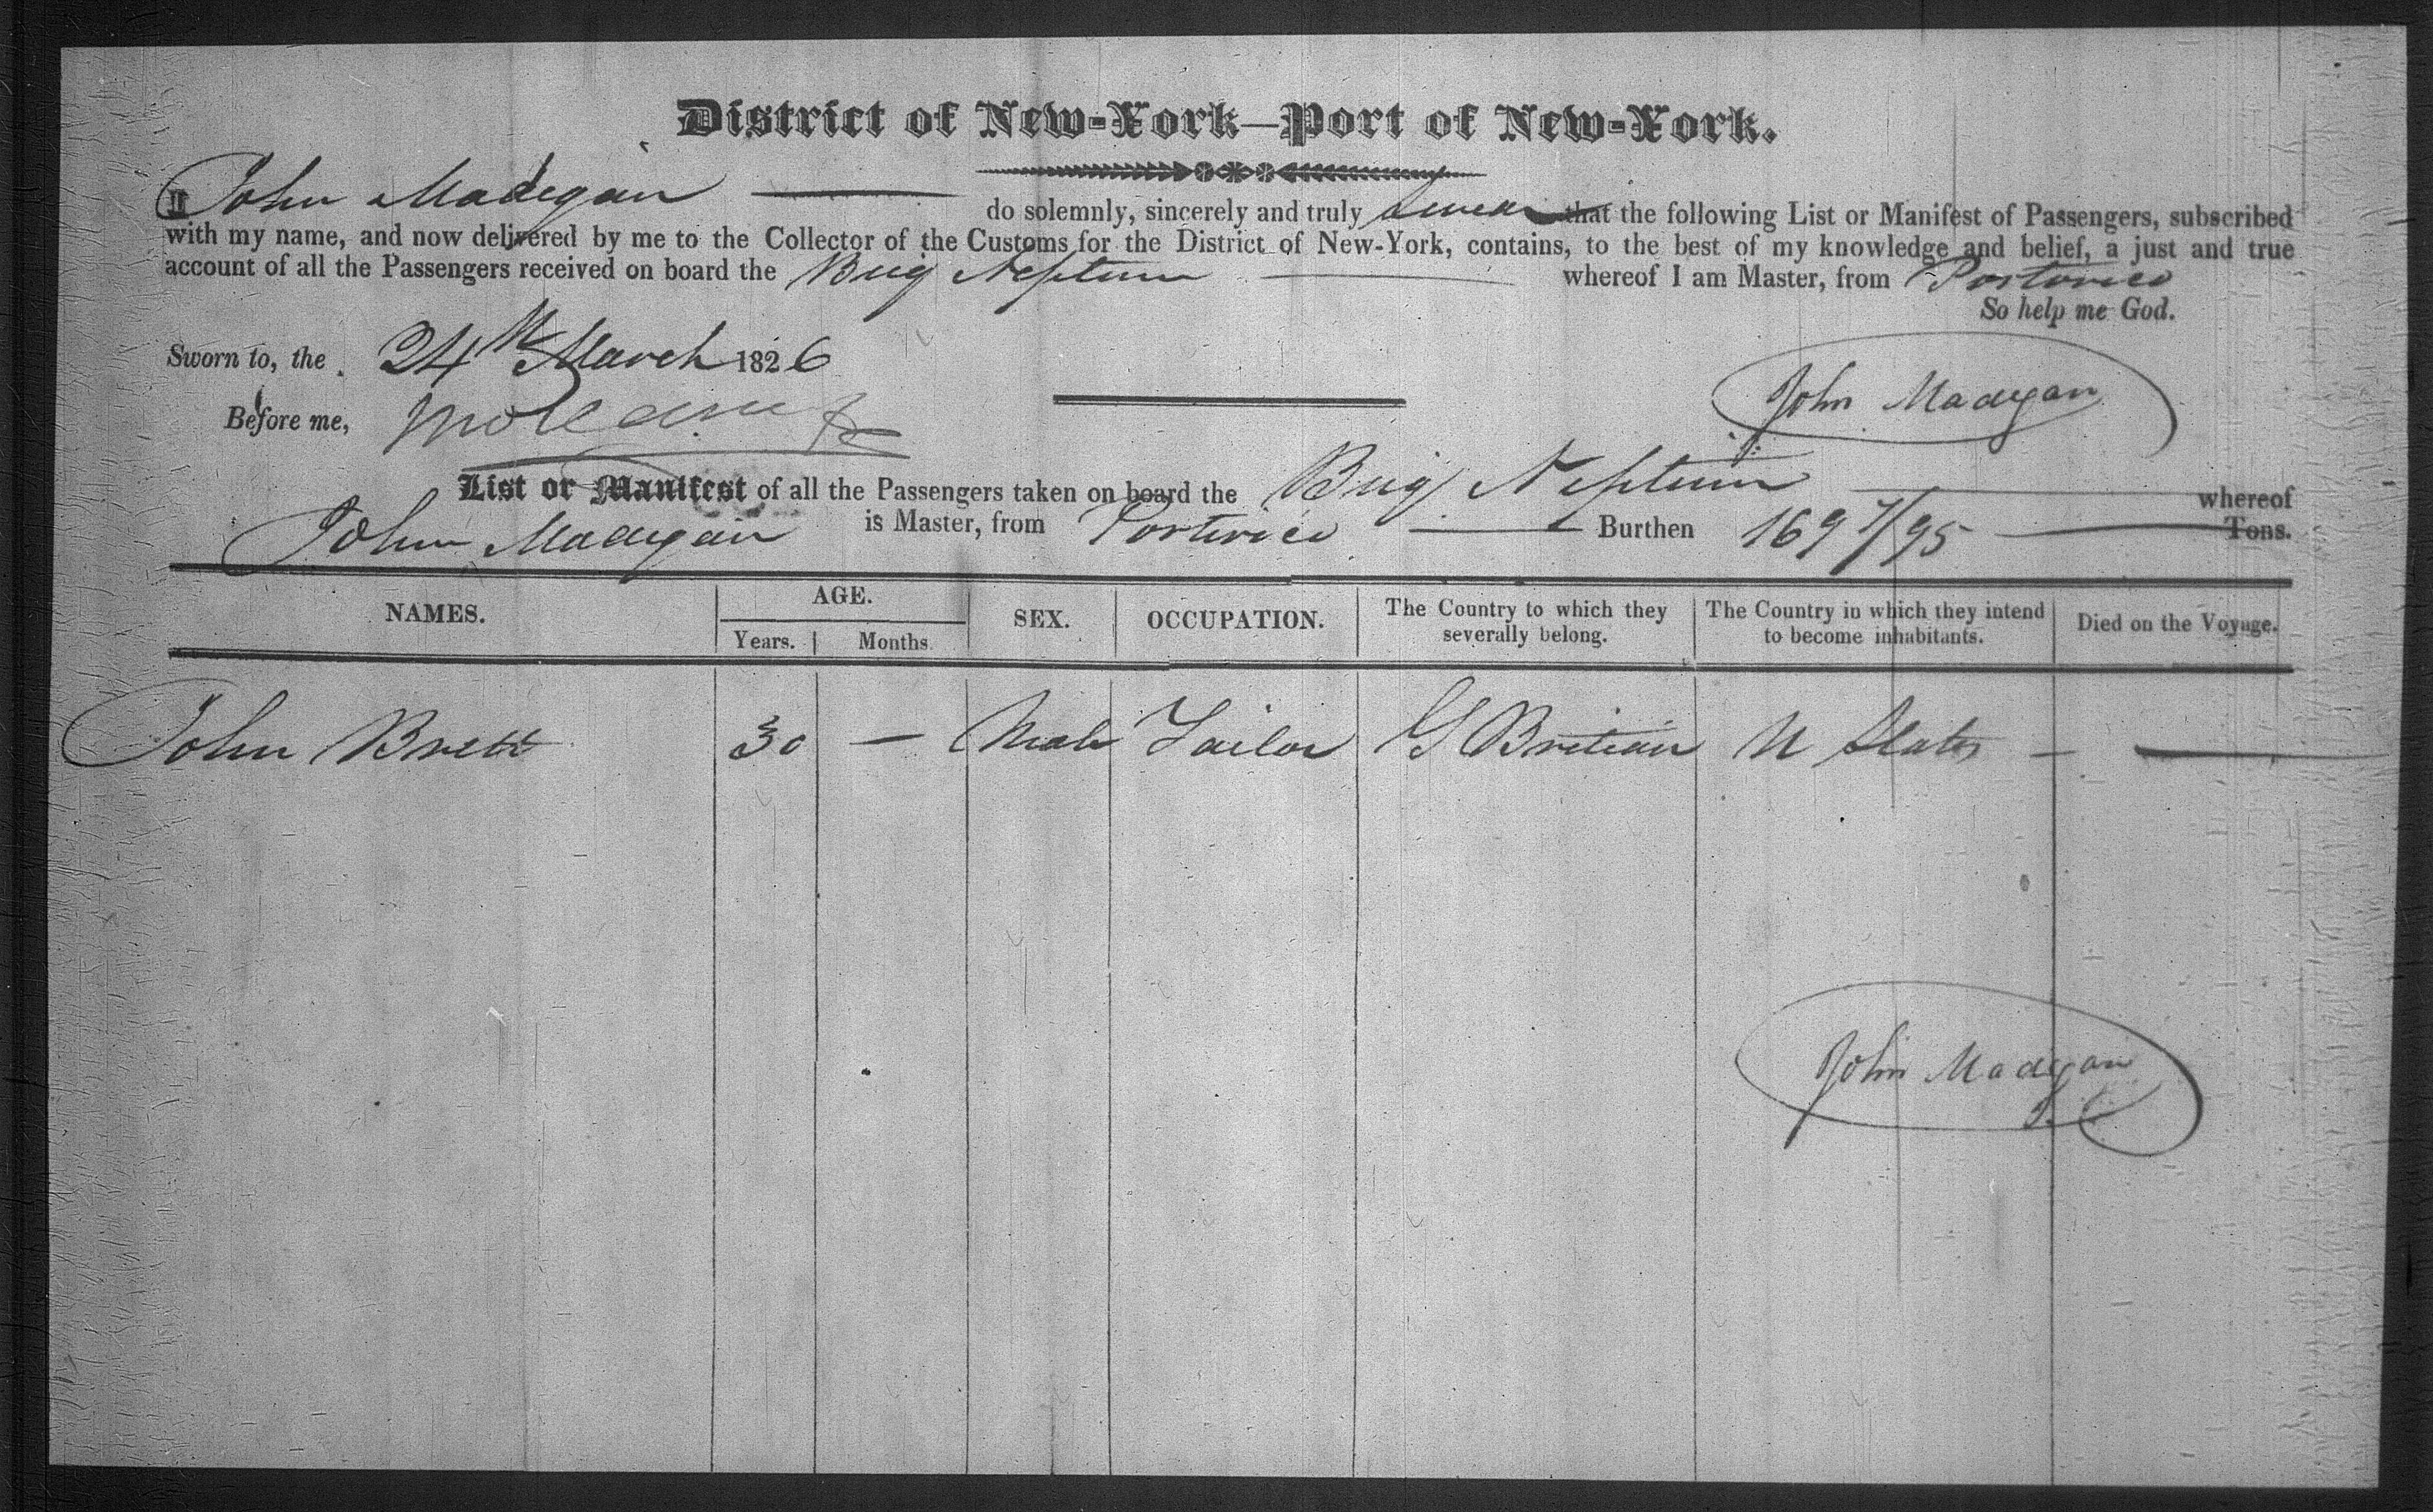 District of New-York—Port of New-York.
I John Madegan — do solemnly, sincerely and truly swear that the following List or Manifest of Passengers, subscribed
with my name, and now delivered by me to the Collector of the Customs for the District of New-York, contains, to the best of my knowledge and belief, a just and true
account of all the Passengers received on board the Brig Neptune — whereof I am Master, from Portorico
So help me God.
Sworn to, the 24th March 1826
John Madegan
Before me,
List or Manifest of all the Passengers taken on board the Brig Neptune — whereof
John Madegan is Master, from Portorico — Burthen 169 7/95 — Tons.
NAMES. AGE. SEX. OCCUPATION. The Country to which they severally belong. The Country in which they intend to become inhabitants. Died on the Voyage.
Years. Months
John Brett 30 — Male Tailor G Britian U States — —
John Madegan